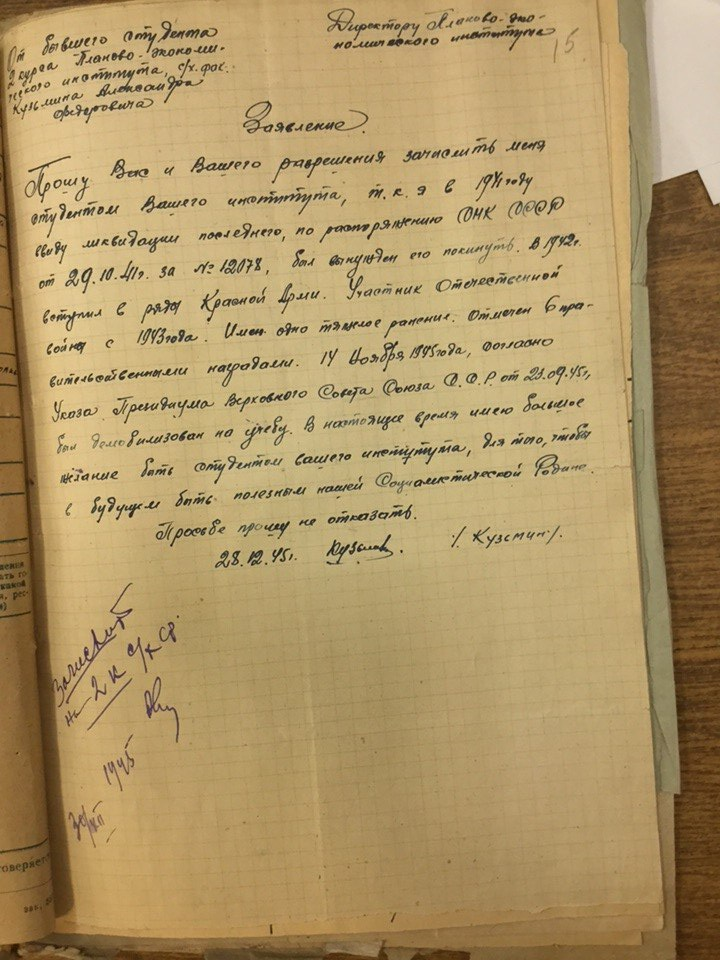 От бывшего студента
2 курса Планово-экономи-
ческого института, с/х. фак.
Кузьмина Александра
Федоровича
Директору Планово-эко-
номического института
15
Заявление.
Прошу Вас и Вашего разрешения зачислить меня
студентом Вашего института, т.к. я в 1941 году
ввиду ликвидации последнего, по распоряжению СНК СССР
от 29.10.41г. за № 12078, был вынужден его покинуть. В 1942г.
вступил в ряды Красной Армии. Участник Отечественной
войны с 1943 года. Имею одно тяжелое ранение. Отмечен 6 пра-
вительственными наградами. 14 Ноября 1945 года, согласно
Указа Президиума Верховного Совета Союза С.С.Р. от 23.09.45г,
был демобилизован на учебу. В настоящее время имею большое
желание быть студентом вашего института, для того, чтобы
в будущем быть полезным нашей Социалистической Родине.
Просьбе прошу не отказать.
28.12.45г. Кузьмин. /Кузьмин/.
Зачислить
на 2 к с/х ф.
1945
30/XII